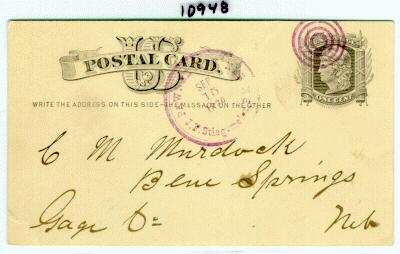 10948
US
POSTAL CARD.
WRITE THE ADDRESS ON THIS SIDE–THE MESSAGE ON THE OTHER
SEP
ONE CENT
C M Murdock
Blue Springs
Gage Co Neb